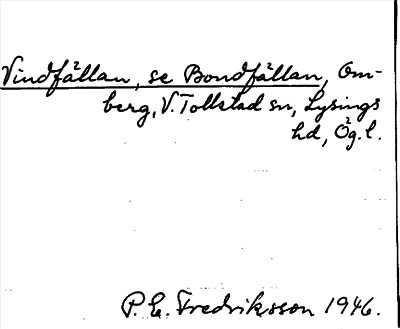 Vindfållan, se Bondfållan, Om-
berg, V. Tollstad sn, Lysings
hd, Ög. l.
P. E. Fredriksson 1946.